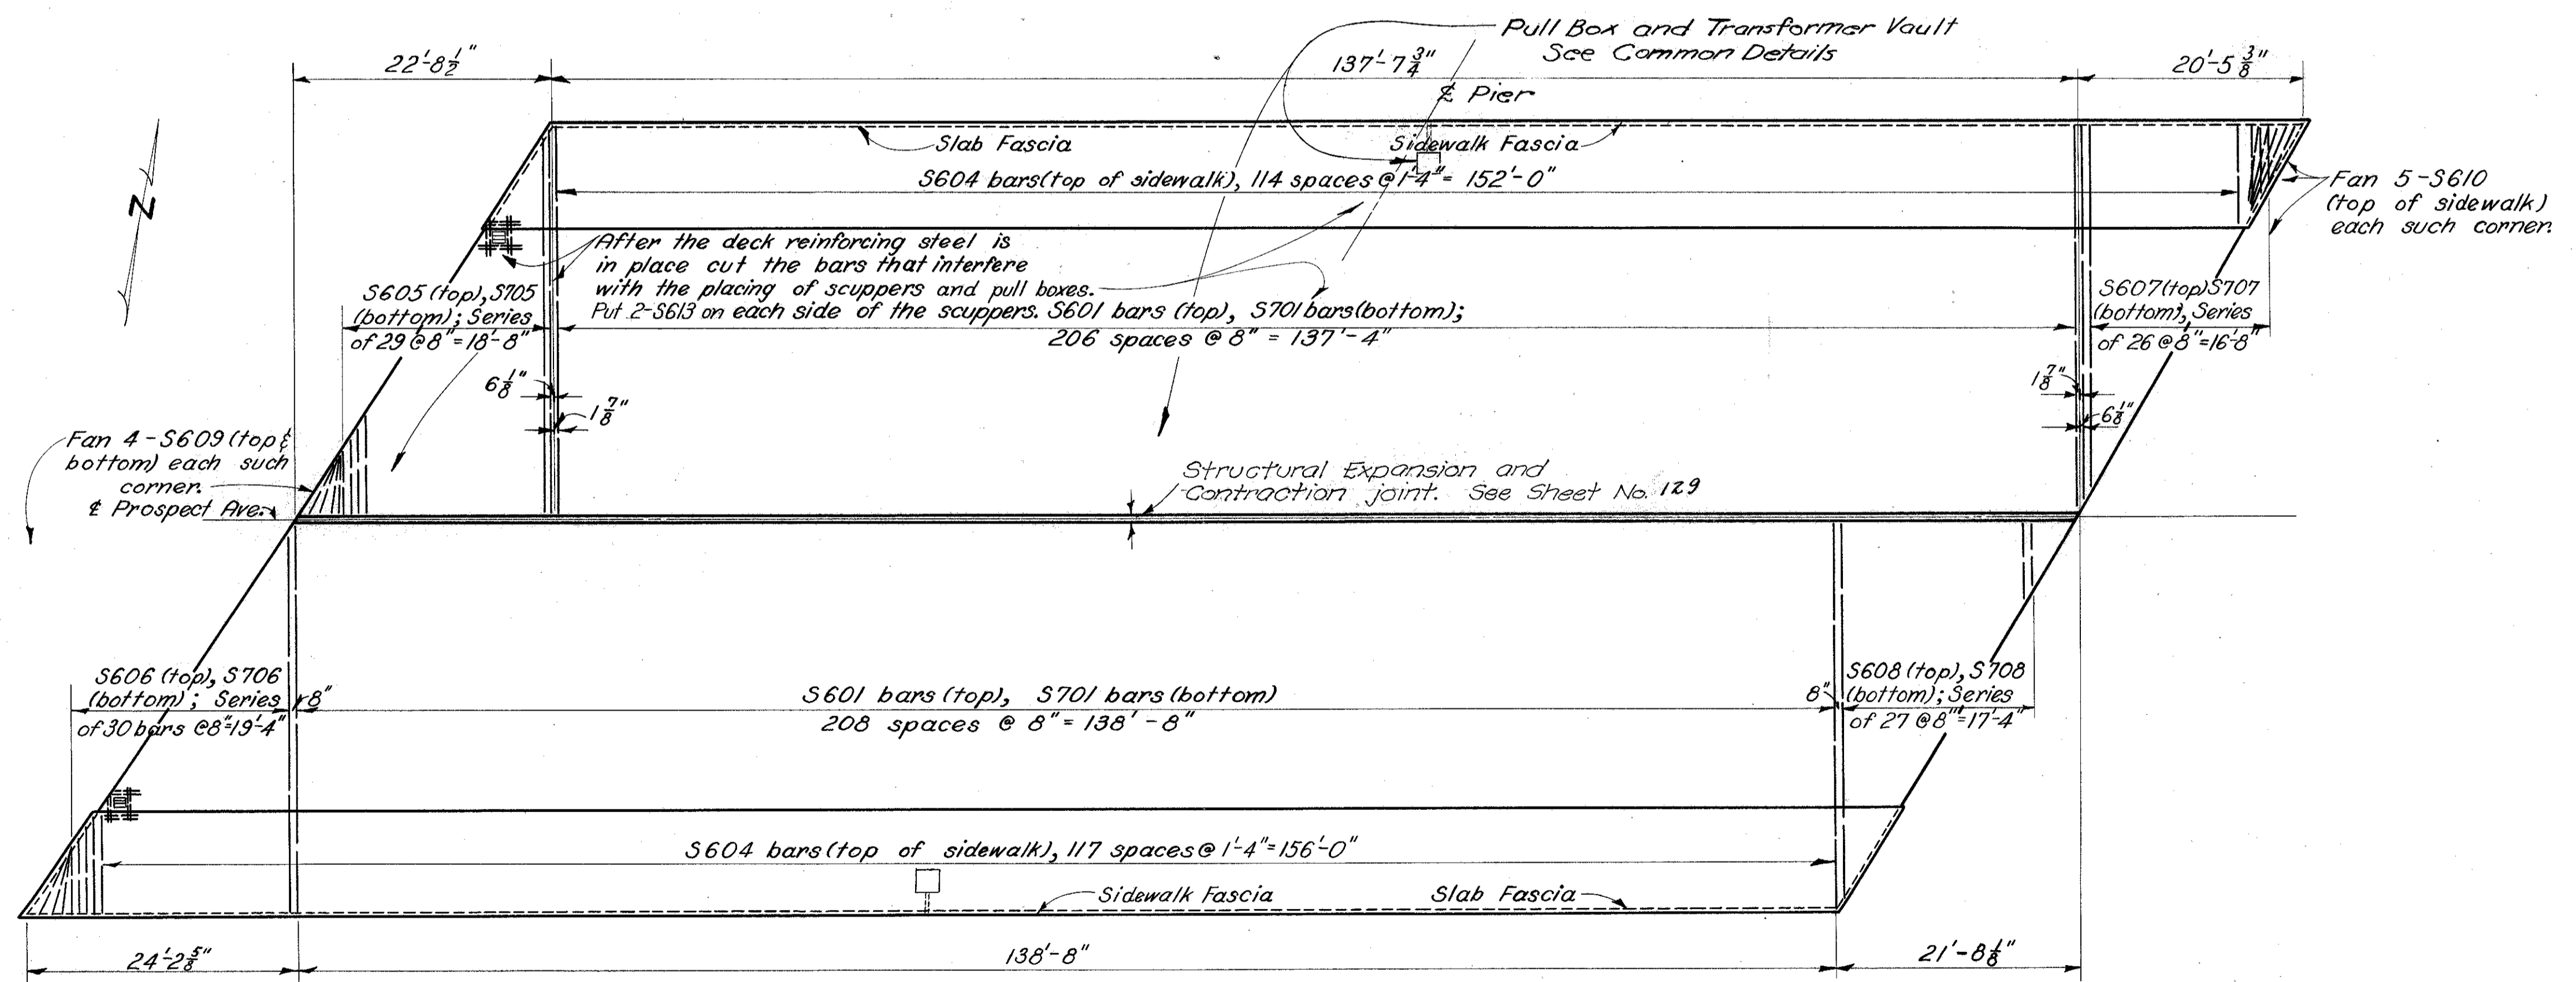 Pull Box and Transformer Vault
See Common Details
22'-8 1/2"
137'-7 3/4"
20'-5 3/8"
℄ Pier
Slab Fascia
Sidewalk Fascia
S604 bars (top of sidewalk), 114 spaces @ 1'-4" = 152'-0"
Fan 5-S610
(top of sidewalk)
each such corner.
N
After the deck reinforcing steel is
in place cut the bars that interfere
with the placing of scuppers and pull boxes.
Put 2-S613 on each side of the scuppers.
S601 bars (top), S701 bars (bottom);
206 spaces @ 8" = 137'-4"
S605 (top), S705
(bottom); Series
of 29 @ 8" = 18'-8"
S607 (top) S707
(bottom), Series
of 26 @ 8" = 16'-8"
6 1/8"
1 7/8"
1 7/8"
6 1/8"
Fan 4-S609 (top &
bottom) each such
corner.
℄ Prospect Ave.
Structural Expansion and
Contraction joint. See Sheet No. 129
S606 (top), S706
(bottom); Series
of 30 bars @ 8" = 19'-4"
8"
S601 bars (top), S701 bars (bottom)
208 spaces @ 8" = 138'-8"
8"
S608 (top), S708
(bottom); Series
of 27 @ 8" = 17'-4"
S604 bars (top of sidewalk), 117 spaces @ 1'-4" = 156'-0"
Sidewalk Fascia
Slab Fascia
24'-2 5/8"
138'-8"
21'-8 1/8"